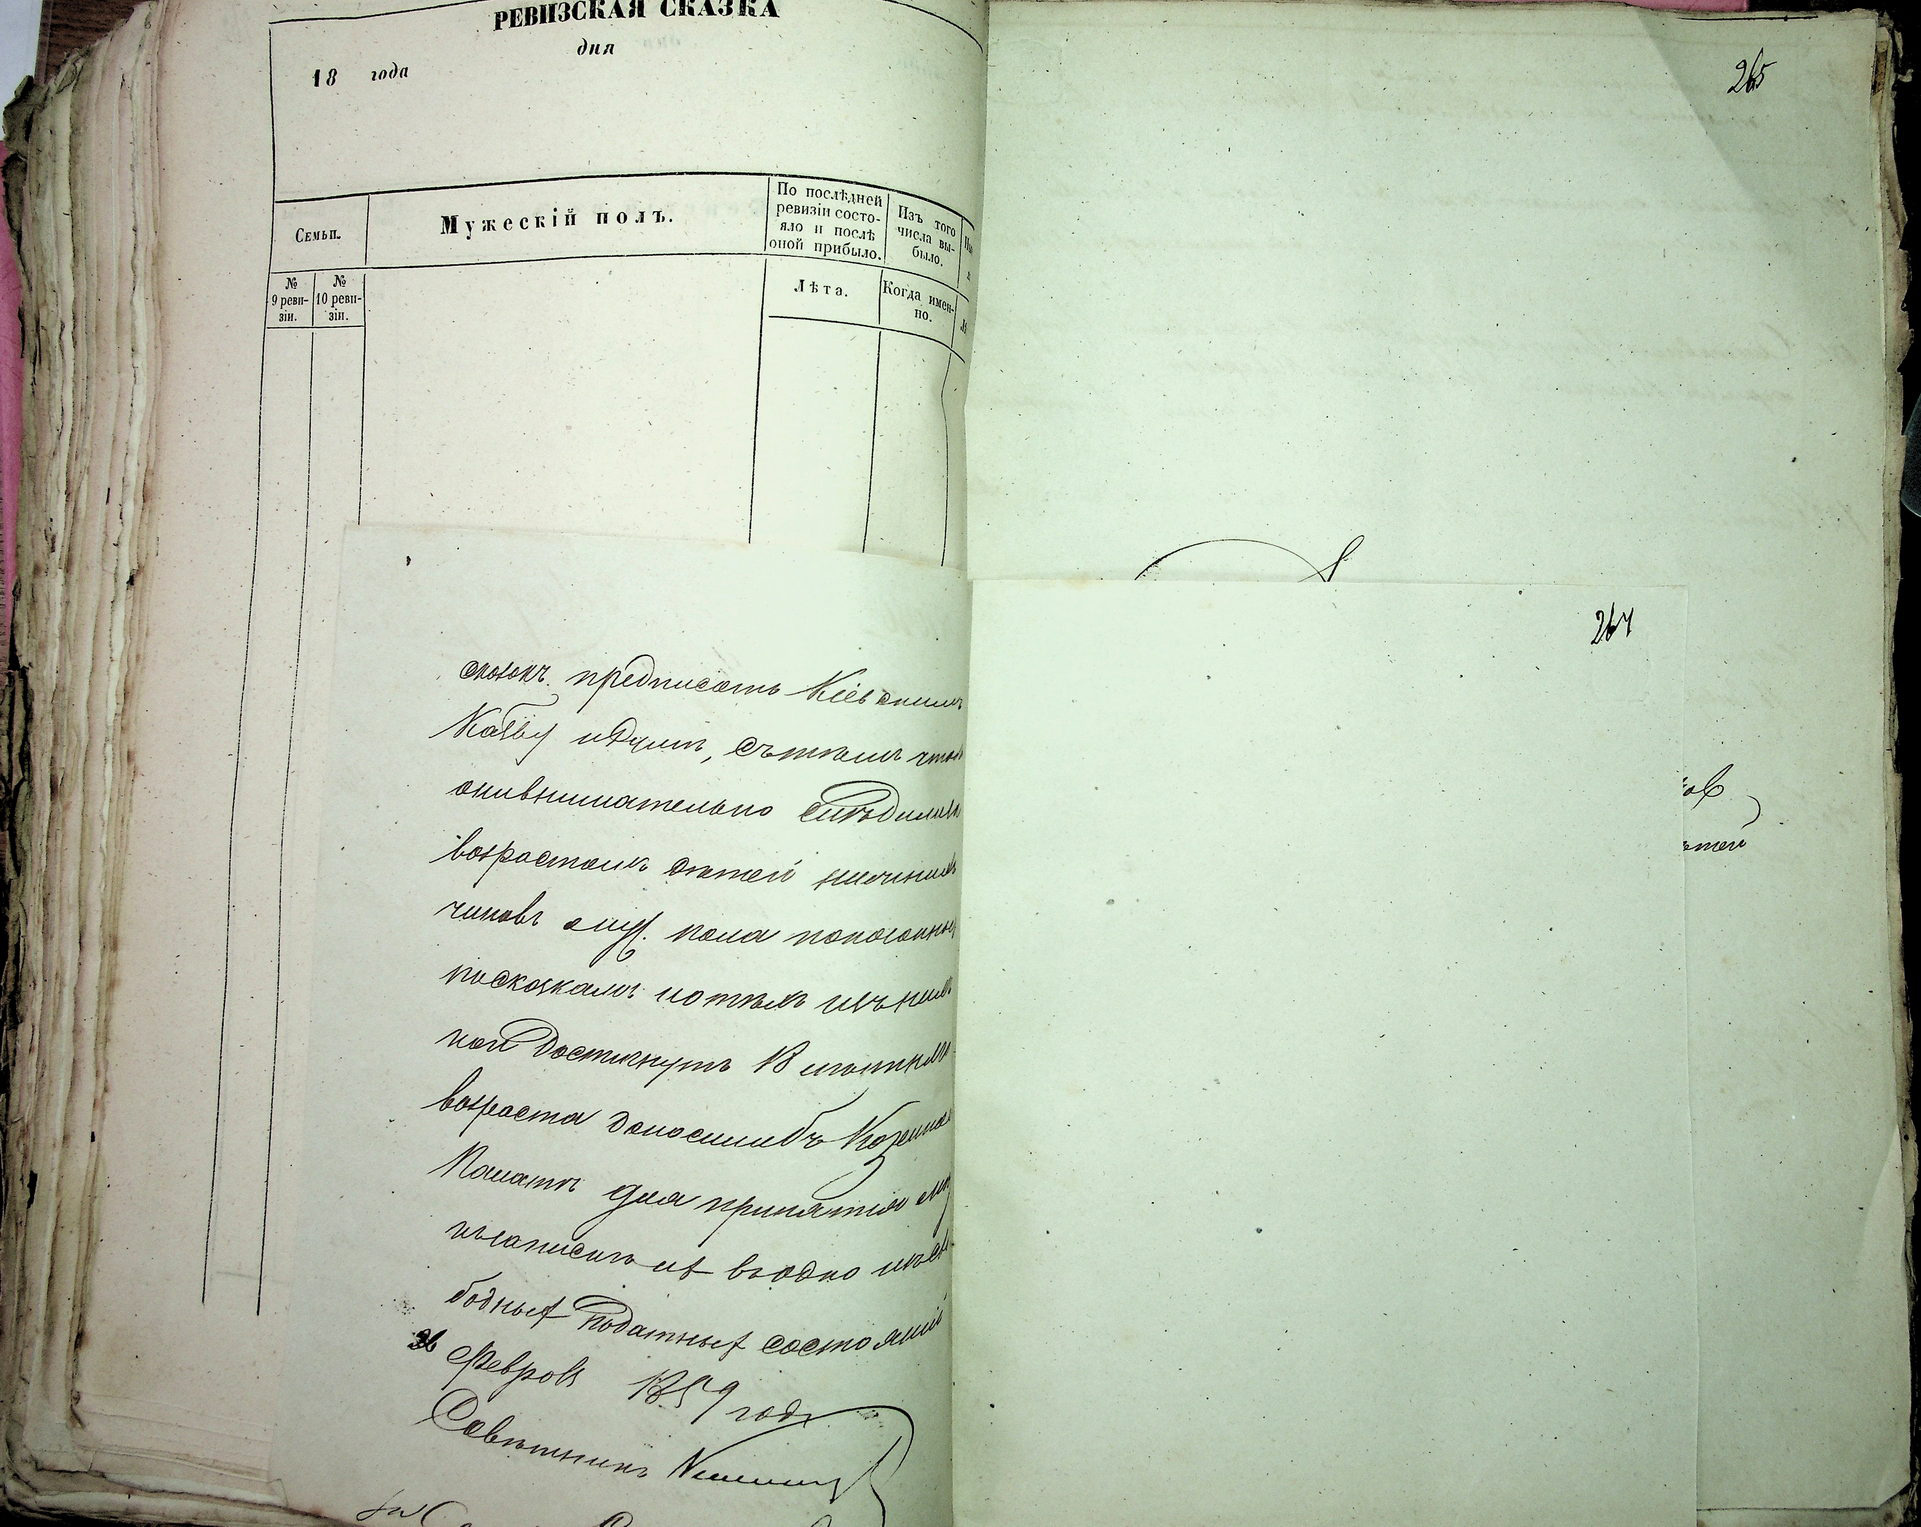 РЕВИЗСКАЯ СКАЗКА
дня
18 года
Семьи.
Мужескій полъ.
По послѣдней
ревизіи состо-
яло и послѣ
оной прибыло.
Изъ того
числа вы-
было.
№
9 реви-
зіи.
№
10 реви-
зіи.
Лѣта.
Когда имен-
но.
265
264
предписать Кіевскимъ
и Думѣ, съ тѣмъ чтобы
они внимательно слѣдили за
возрастомъ дѣтей нижнихъ
чиновъ муж. пола показанныхъ
по сказкамъ и о тѣхъ изъ нихъ
кои достигнутъ 18 лѣтняго
возраста доносили бъ Казенной
Палатѣ для принятія мѣръ
къ записи ихъ въ одно изъ сво-
бодныхъ податныхъ состояній
Февраля 1859 года
Совѣтникъ